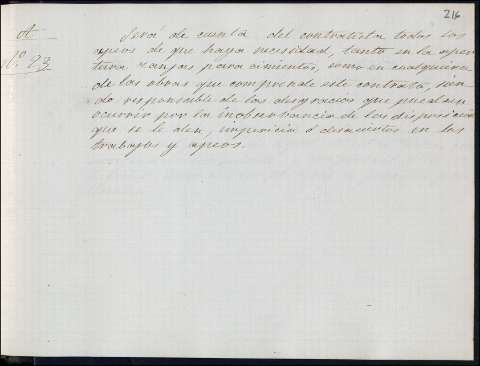 216
A
Nº 23
Será de cuenta del contratista todos los
apeos de que haya necesidad, tanto en la aper
tura zanjas para cimientos, como en cualquiera
de las obras que comprende este contrato, sien
do responsable de las desgracias que puedan
ocurrir por la inobservancia de las disposicio
que se le den, impericia ó descuentos en los
trabajos y apeos.